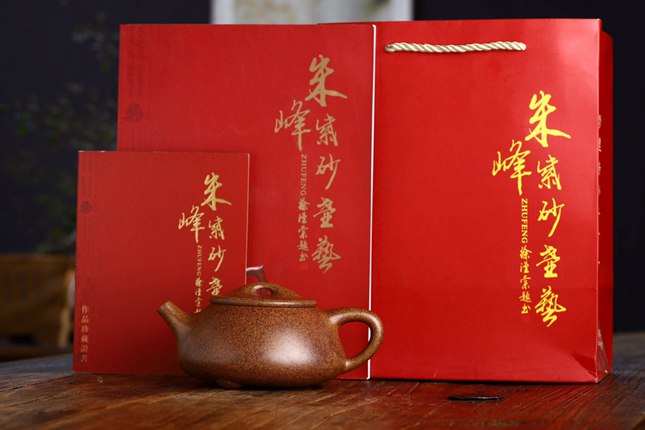 朱峰
紫砂壶艺
ZHUFENG
徐汉棠题
朱峰
紫砂壶艺
ZHUFENG
徐汉棠题
朱峰
紫砂
ZHUFENG
作品珍藏證书